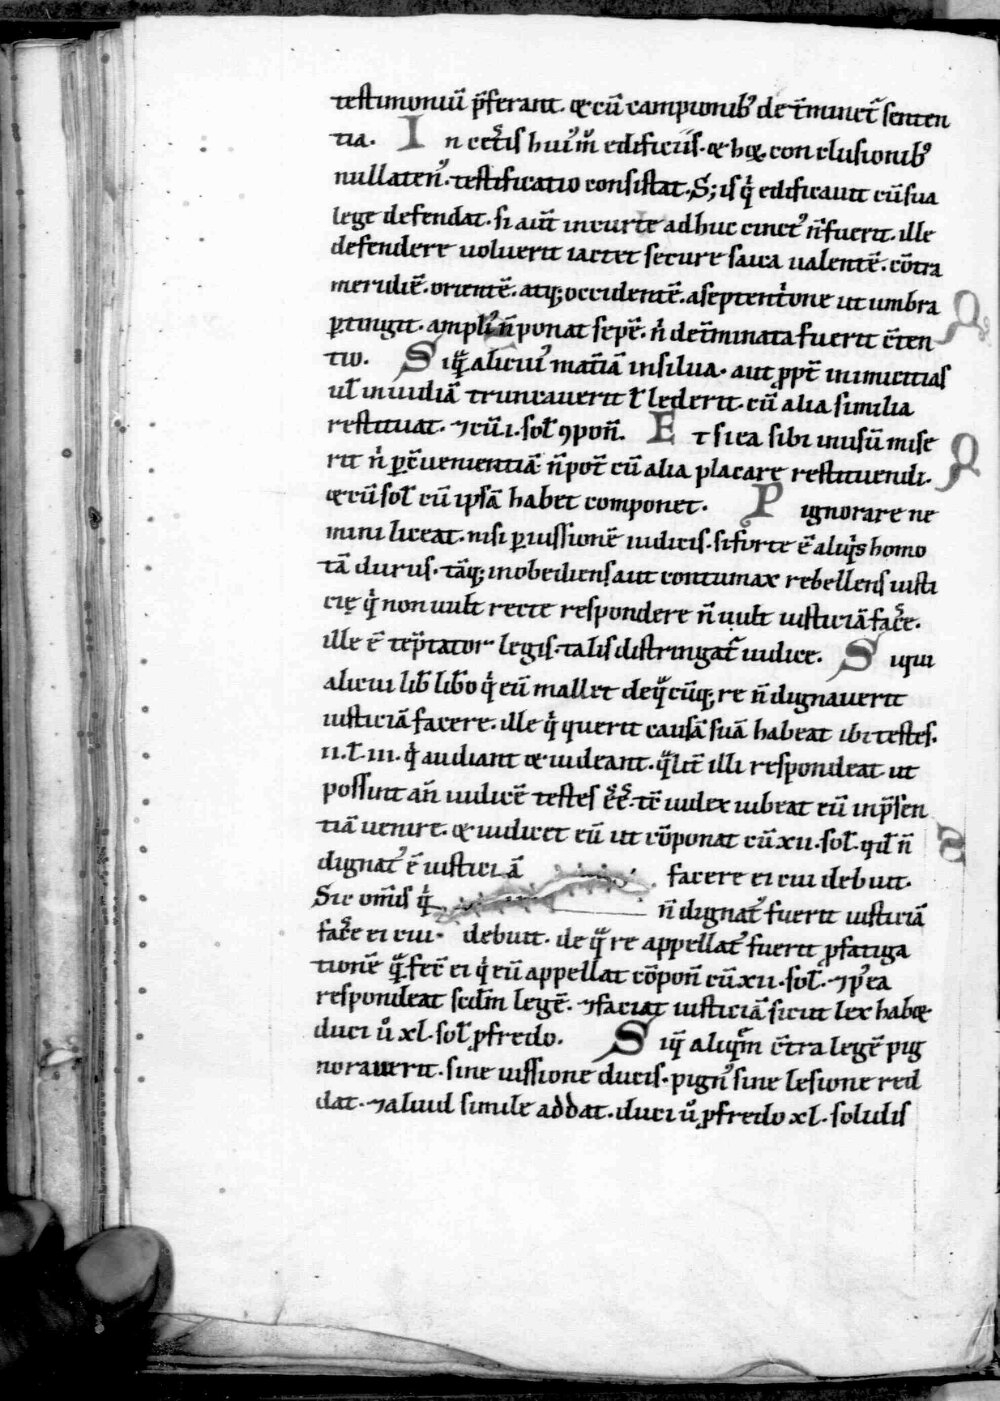 testimoniū p̄ferant. ⁊ cū campionib᷒ det̄minet᷑ senten
tia. In cet̄is hui᷒m̊ edificiis. ⁊ hęc conclusionib᷒
nullaten᷒. testificatio consistat. S; is q̇ edificauit cū sua
lege defendat. si aut̄ in curte adhuc cinct᷒ n̄ fuerit. ille
defendere uoluerit iactet secure saiga ualentē. cōtra
meridiē. orientē. atq; occidentē. a septentrione ut umbra
ꝑtingit. ampli᷒ n̄ ponat sepē. n̊ det̄minata fuerit c̄ten
tio. Siq̄s alicui᷒ mat̄iā in silua. aut ꝓpt̄ inimicitias
ul̄ inuidiā truncauerit l̄ lederit. cū alia similia
restituat. ⁊ cū .i. sol̄ ꝯpoñ. Et si ea sibi in usū mise
rit n̊ ꝑ c̄uenientiā: n̄ pot̄ cū alia placare restituendi.
⁊ cū sol̄ cū ipsā habet componet. Pignorare ne
mini liceat. nisi ꝑ iussionē iudicis. si forte ē aliq̇s homo
tā durus. tāq; inobediens aut contumax rebellens iusti
cię q̇ non uult recte respondere n̄ uult iusticiā fac̄e.
ille ē tēptator legis. talis distringat᷑ iudice. Siqui
alicui lib̄ lib̄o q̇ eū mallet de q̄cūq; re n̄ dignauerit
iusticiā facere. ille q̇ querit causā suā habeat ibi testes.
ii. l̄ .iii. q̇ audiant ⁊ uideant. q̄lit̄ illi respondeat ut
possint añ iudicē testes ēē. tē iudex iubeat eū in p̄sen
tiā uenire. ⁊ iudicet eū ut cōponat cū xii. sol̄. qd̄ n̄
dignat᷒ ē iusticiā facere ei cui debuit.
Sic om̄is q̇ n̄ dignat᷒ fuerit iusticiā
fac̄e ei cui debuit. de q̄ re appellat᷒ fuerit ꝓ fatiga
tionē q̄ fec̄ ei q̇ eū appellat cōpoñ cū xii. sol̄. ⁊ p᷒ea
respondeat scd̄m legē. ⁊ faciat iusticiā sicut lex habet
duci ů xl. sol̄ ꝓ fredo. Siq̄ aliq̄m c̄tra legē pig
norauerit. sine iussione ducis. pign᷒ sine lesione red
dat. ⁊ aliud simile addat. duci ů ꝓ fredo xl. solidis